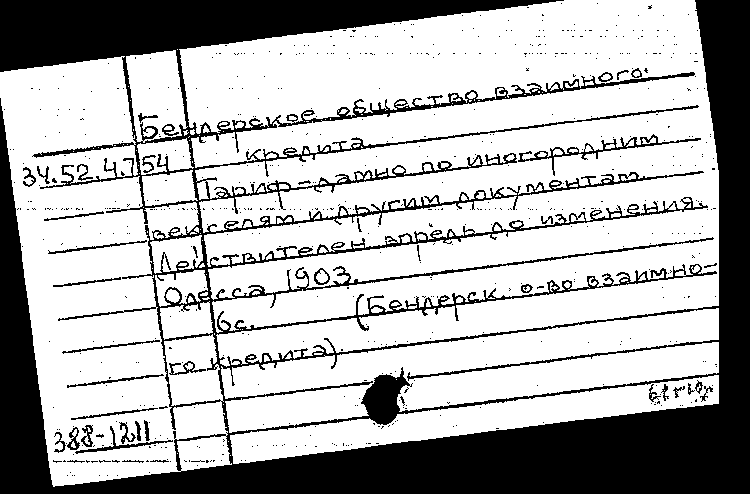 Бендерское общество взаимного
кредита.
34.52.4.754
Тариф-дамно по иногородним
векселям и другим документам.
Действителен впредь до изменения.
Одесса, 1903.
6с. (Бендерск. о-во взаимно-
го кредита)
388-1211